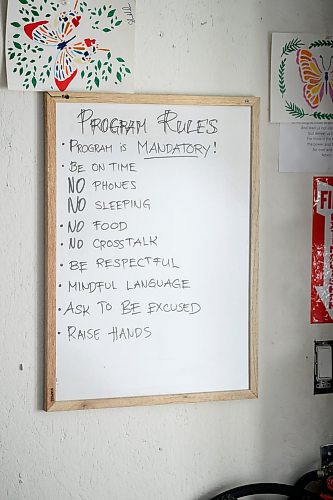 PROGRAM RULES
• PROGRAM IS MANDATORY!
• BE ON TIME
• NO PHONES
• NO SLEEPING
• NO FOOD
• NO CROSSTALK
• BE RESPECTFUL
• MINDFUL LANGUAGE
• ASK TO BE EXCUSED
• RAISE HANDS